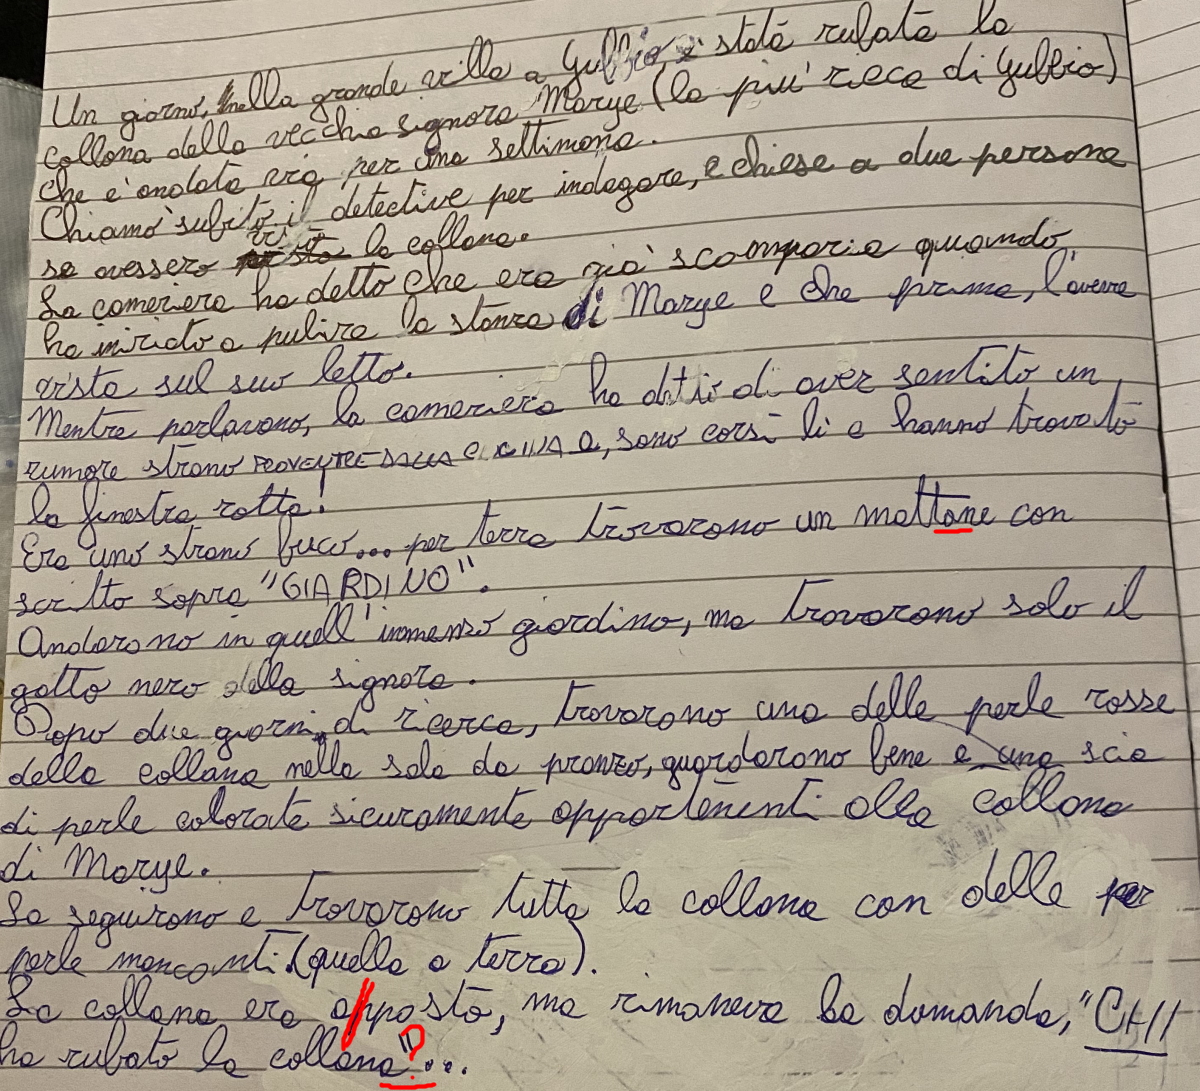 Un giorno, nella grande villa a Gubbio, è stata rubata la
collana della vecchia signora Marye (la più ricca di Gubbio)
che è andata via per una settimana.
Chiamò subito il detective per indagare, e chiese a due persone
se avessero visto la collana.
La cameriera ha detto che era già scomparsa quando
ha iniziato a pulire la stanza di Marye e che prima, l'aveva
vista sul suo letto.
Mentre parlavano, la cameriera ha detto di aver sentito un
rumore strano, sono corsi lì e hanno trovato
la finestra rotta!
Era uno strano buco... per terra trovarono un mattone con
scritto sopra "GIARDINO".
Andarono in quell'immenso giardino, ma trovarono solo il
gatto nero della signora.
Dopo due giorni di ricerca, trovarono una delle perle rosse
della collana nella sala da pranzo, guardarono bene e una scia
di perle colorate sicuramente appartenenti alla collana
di Marye.
La seguirono e trovarono tutta la collana con delle per
perle mancanti (quella a terra).
La collana era apposto, ma rimaneva la domanda, "CHI
ha rubato la collana"?...